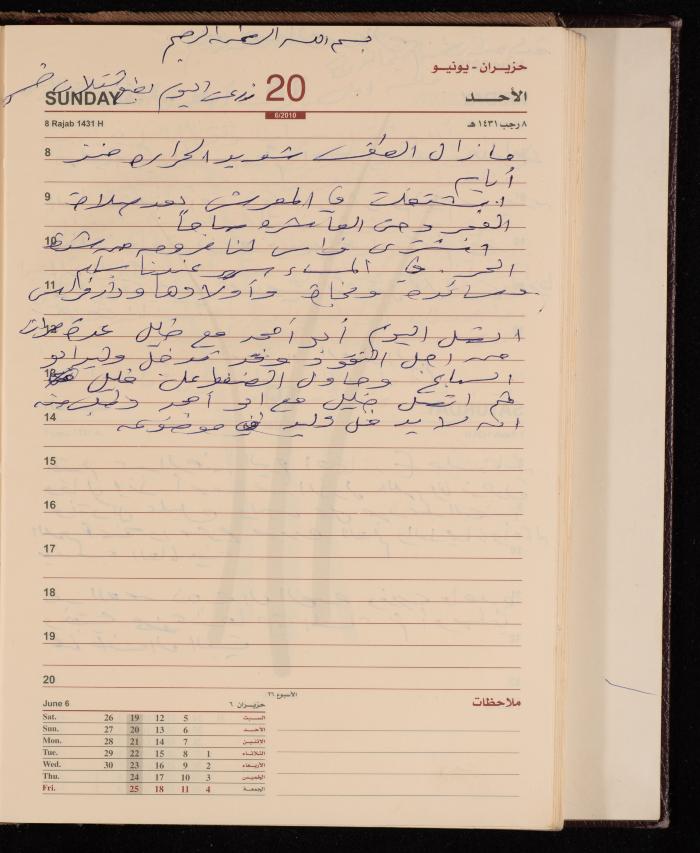 بسم الله الرحمن الرحيم
حزيران - يونيو
زرعت اليوم بضع شتلات
SUNDAY
20
الأحــد
6/2010
8 Rajab 1431 H
٨ رجب ١٤٣١ هـ
8 ما زال الطقس شديد الحرارة منذ
أيام
9 اشتغلت في المعرش بعد صلاة
الفجر وحتى العاشرة صباحاً
10 اشترى فراس لنا مروحة من شدة
الحر. في المساء سهر عندنا سليم
11 وسائدة ونجاة وأولادها و
12 اتصل اليوم أبو أحمد مع خليل عدة مرات
من أجل النقود وقد تدخل وليد أبو
13 السباع وحاول الضغط على خليل
ثم اتصل خليل مع أبو أحمد وطلب منه
14 أن لا يدخل وليد في موضوعه
15
16
17
18
19
20
June 6
حزيران ٦
الأسبوع ٢٦
ملاحظات
Sat. 26 19 12 5 السبت
Sun. 27 20 13 6 الأحد
Mon. 28 21 14 7 الاثنين
Tue. 29 22 15 8 1 الثلاثاء
Wed. 30 23 16 9 2 الأربعاء
Thu. 24 17 10 3 الخميس
Fri. 25 18 11 4 الجمعة